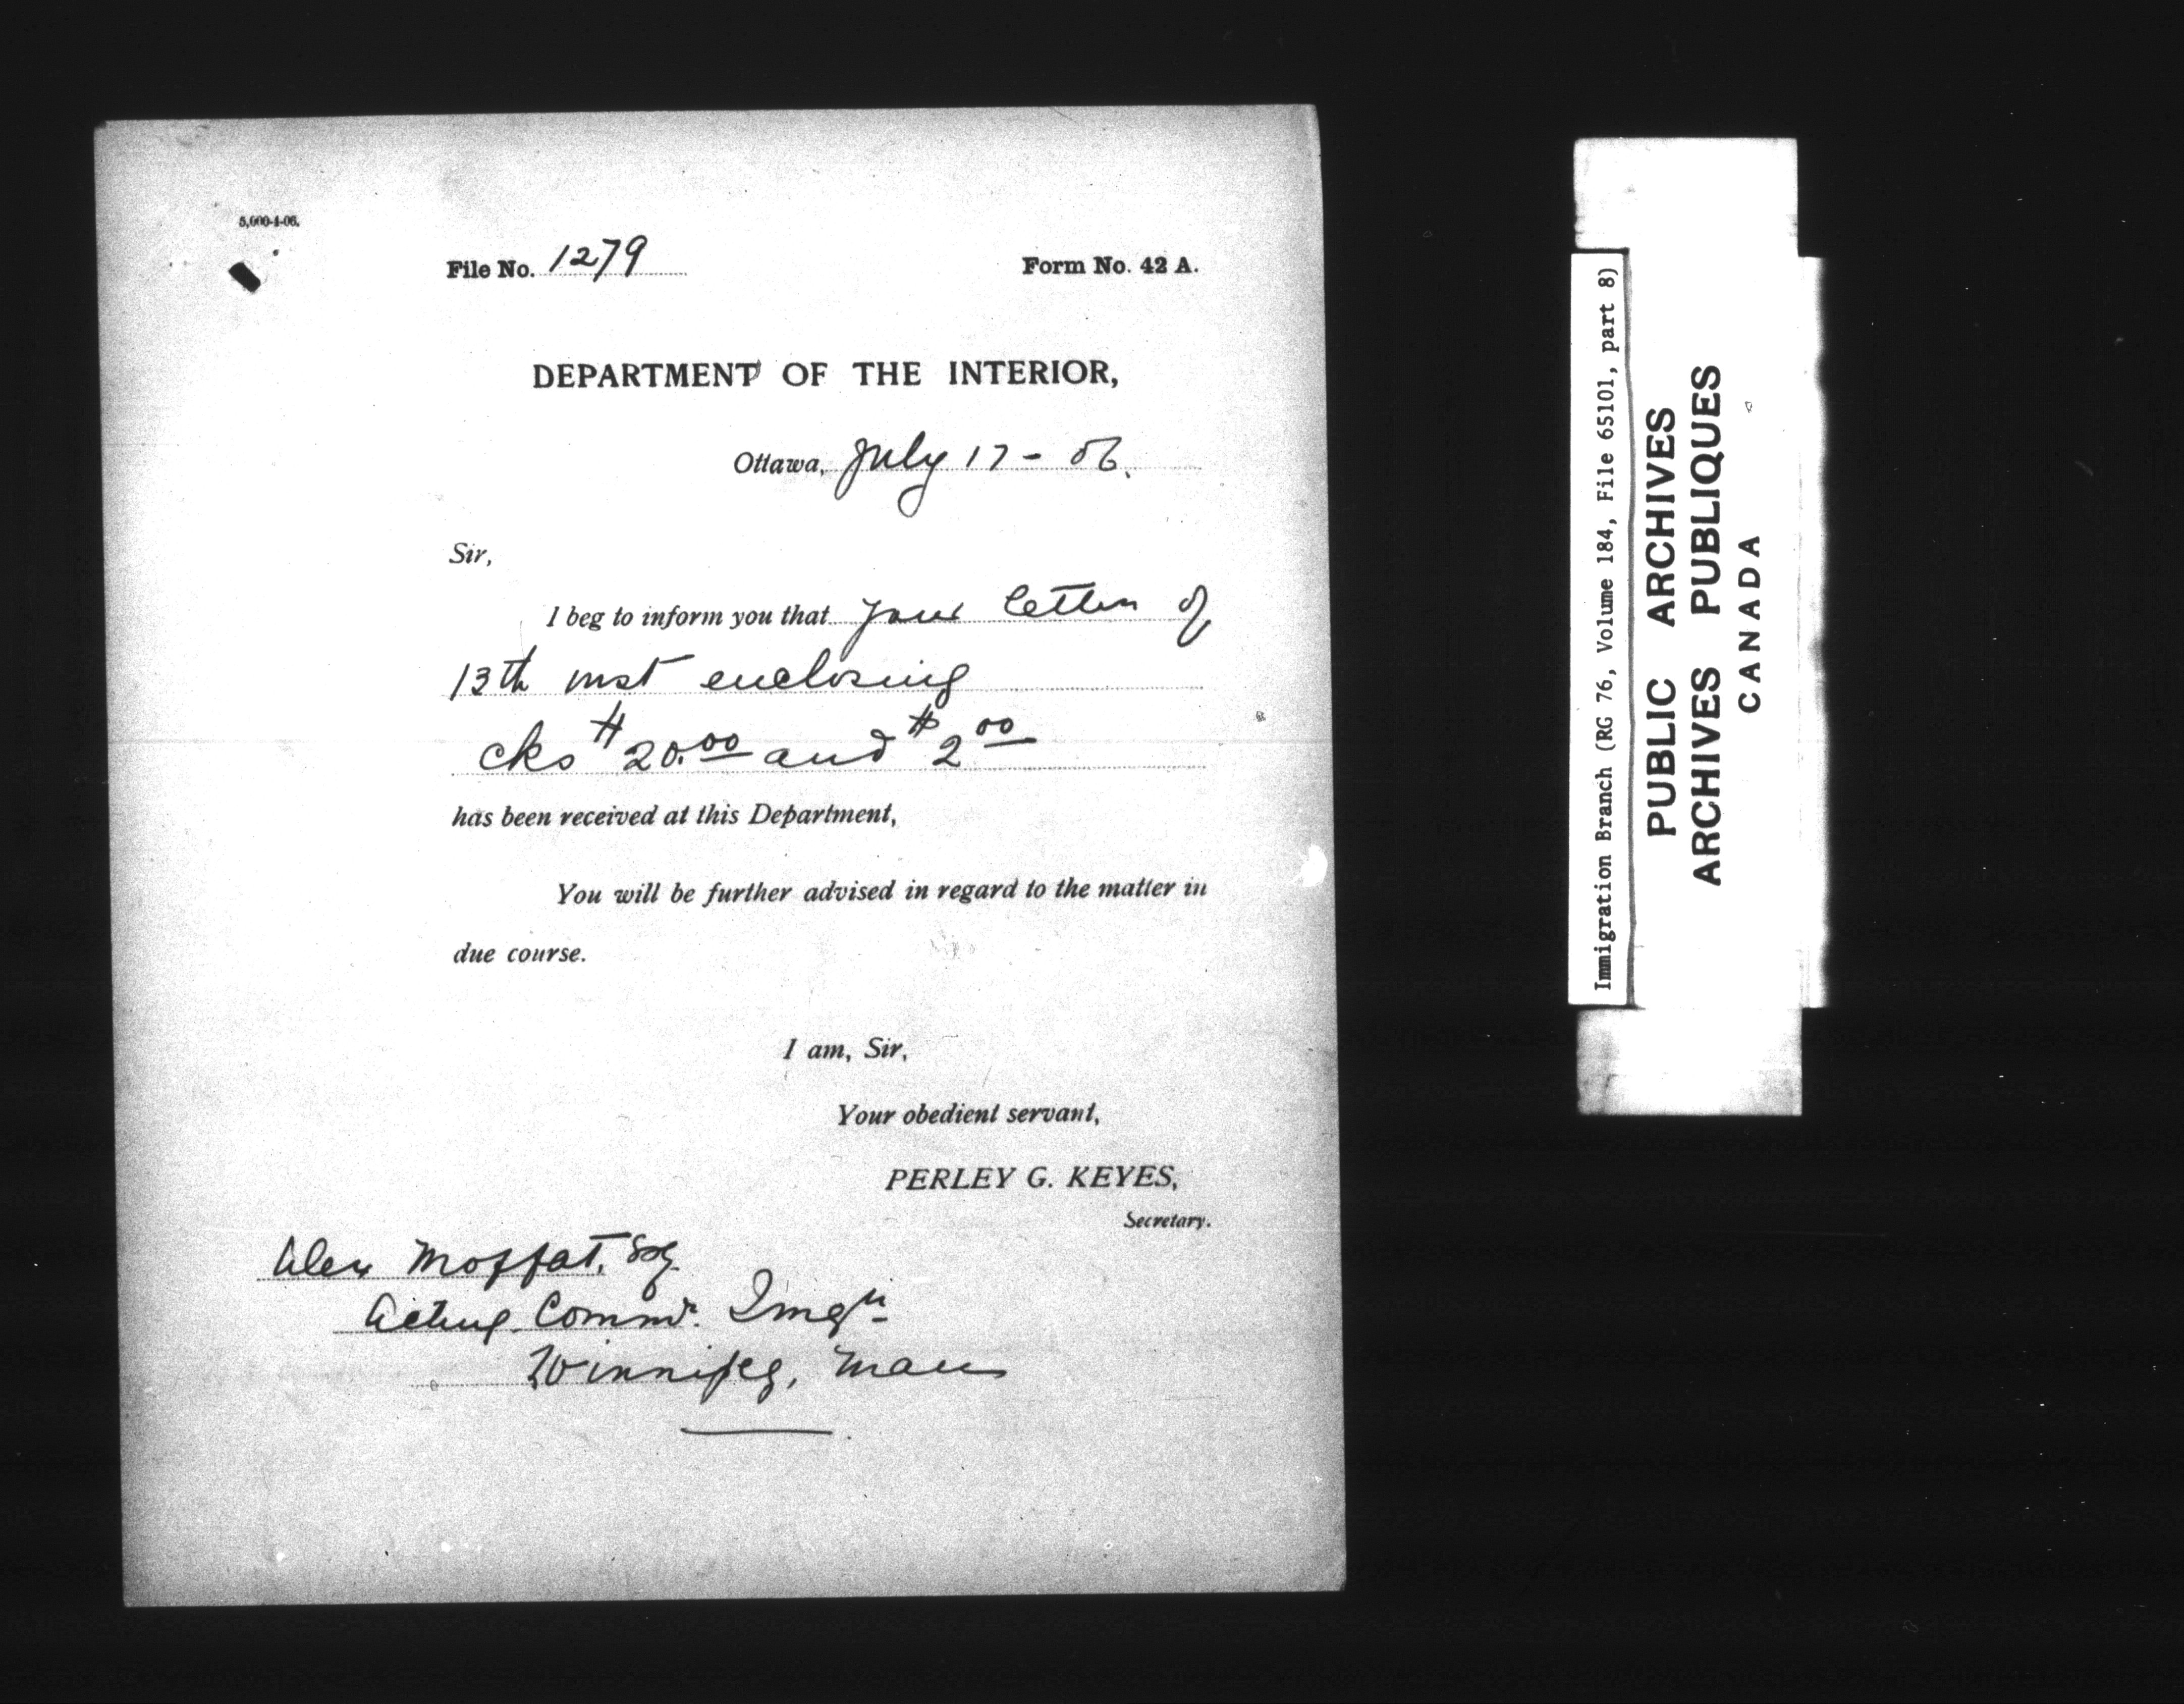 5,000-4-06.
File No. 1279
Form No. 42 A.
DEPARTMENT OF THE INTERIOR,
Ottawa, July 17 - 06.
Sir,
I beg to inform you that your letter of
13th inst enclosing
cks $20.00 and $2 00
has been received at this Department,
You will be further advised in regard to the matter in
due course.
I am, Sir,
Your obedient servant,
PERLEY G. KEYES,
Secretary.
Alex Moffat, Esq
Acting Commr. Imgn
Winnipeg, Man
Immigration Branch (RG 76, Volume 184, File 65101, part 8)
PUBLIC ARCHIVES
ARCHIVES PUBLIQUES
CANADA